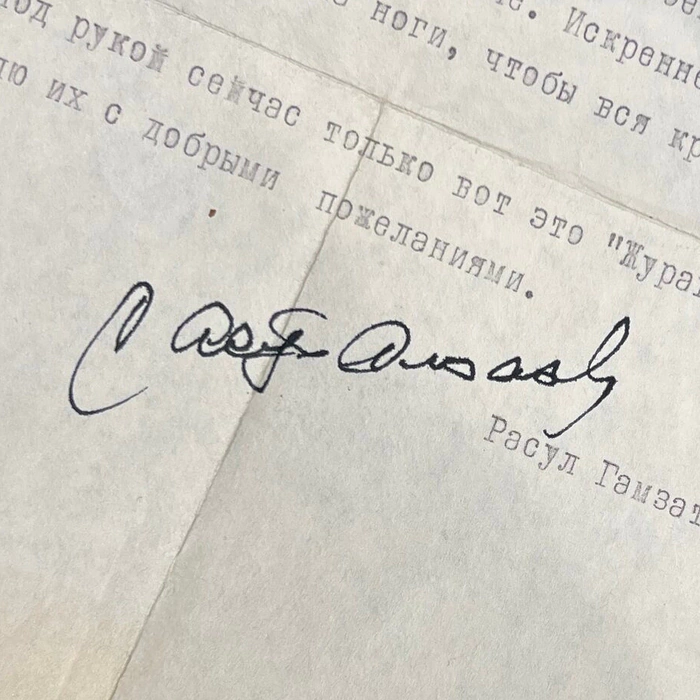 Искренне
ноги, чтобы вся кр
под рукой сейчас только вот это "Журав
лю их с добрыми пожеланиями.
Расул Гамзат